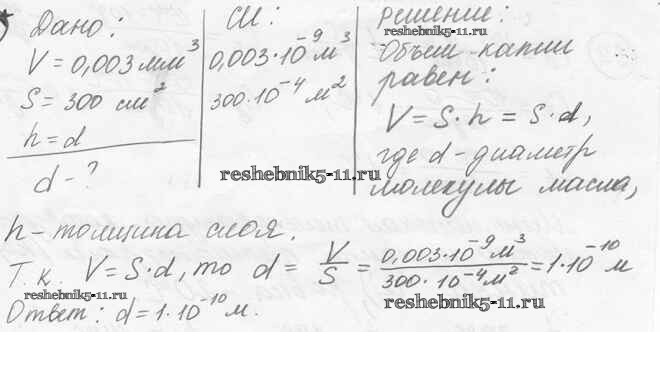 Дано:
V = 0,003 мм³
S = 300 см²
h = d
d - ?
СИ:
0,003·10⁻⁹ м³
300·10⁻⁴ м²
Решение:
reshebnik5-11.ru
Объем капли
равен:
V = S·h = S·d,
где d - диаметр
молекулы масла,
reshebnik5-11.ru
h - толщина слоя.
Т.к. V = S·d, то d = V/S = 0,003·10⁻⁹ м³ / 300·10⁻⁴ м² = 1·10⁻¹⁰ м
reshebnik5-11.ru
reshebnik5-11.ru
Ответ: d = 1·10⁻¹⁰ м.